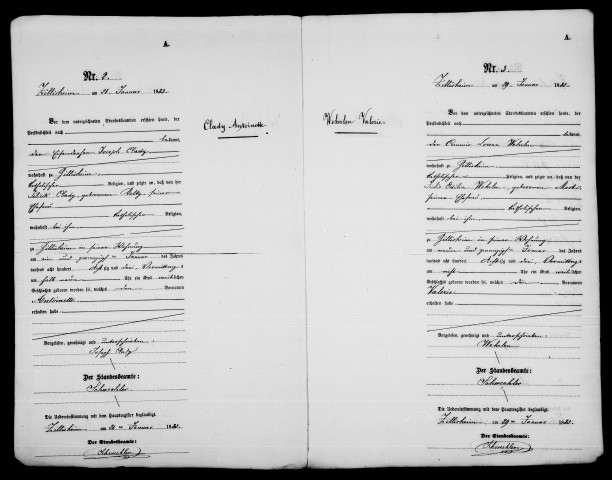 A.
Nr. 2.
Zillisheim am 21. Januar 1883.
Vor dem unterzeichneten Standesbeamten erschien heute, der
Persönlichkeit nach
bekannt,
der Joseph Clady
wohnhaft zu Zillisheim
katholischer Religion, und zeigte an, daß von der
Clady, geborenen seiner
Ehefrau
katholischer Religion,
wohnhaft bei ihm
zu Zillisheim in seiner Wohnung
am ein und zwanzigsten Januar des Jahres
tausend acht hundert achtzig und drei, Vormittags
um halb neun Uhr ein Kind weiblichen
Geschlechts geboren worden sei, welches den Vornamen
Antoinette
erhalten habe
Vorgelesen, genehmigt und unterschrieben
Joseph Clady
Der Standesbeamte:
Die Uebereinstimmung mit dem Hauptregister beglaubigt.
Zillisheim am 21ten Januar 1883.
Der Standesbeamte:
Clady Antoinette.
Wehrlen Valerie.
A.
Nr. 3.
Zillisheim am 29. Januar 1883.
Vor dem unterzeichneten Standesbeamten erschien heute, der
Persönlichkeit nach
bekannt,
der Wehrlen
wohnhaft zu Zillisheim
katholischer Religion, und zeigte an, daß von der
Wehrlen, geborenen
seiner Ehefrau
katholischer Religion,
wohnhaft bei ihm
zu Zillisheim in seiner Wohnung
am neun und zwanzigsten Januar des Jahres
tausend acht hundert achtzig und drei, Vormittags
um Uhr ein Kind weiblichen
Geschlechts geboren worden sei, welches den Vornamen
Valerie
erhalten habe
Vorgelesen, genehmigt und unterschrieben
Wehrlen
Der Standesbeamte:
Die Uebereinstimmung mit dem Hauptregister beglaubigt.
Zillisheim am 29ten Januar 1883.
Der Standesbeamte: